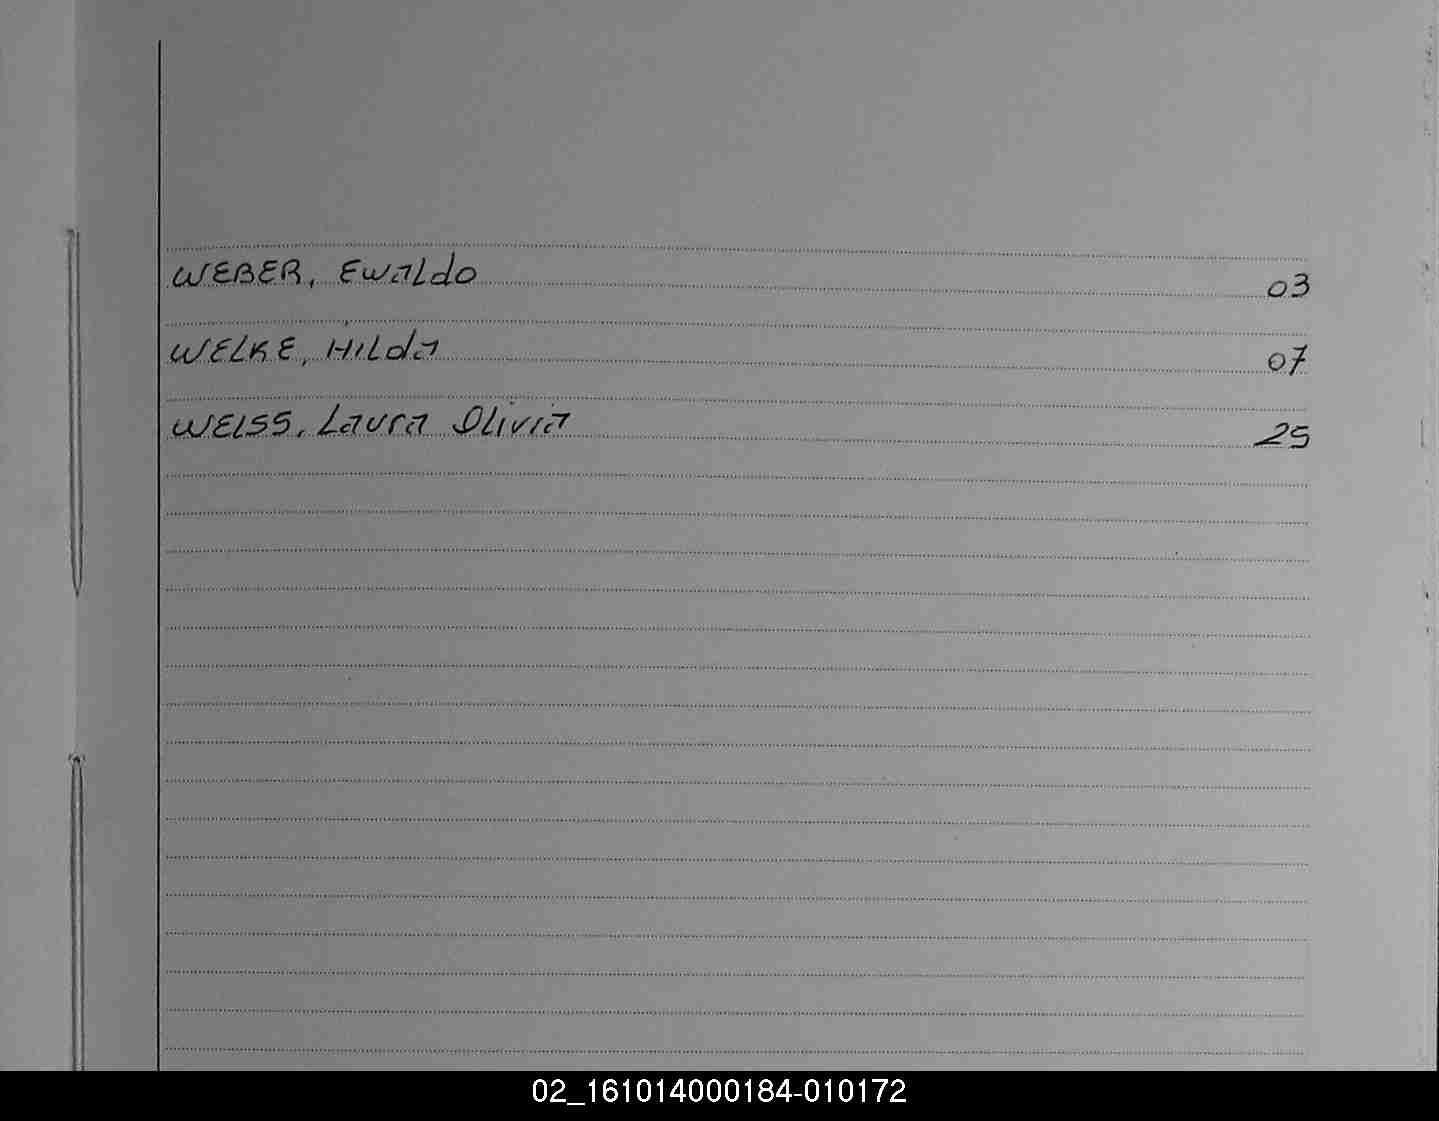 WEBER, Ewaldo 03
WELKE, Hilda 07
WEISS, Laura Olivia 25
02_161014000184-010172